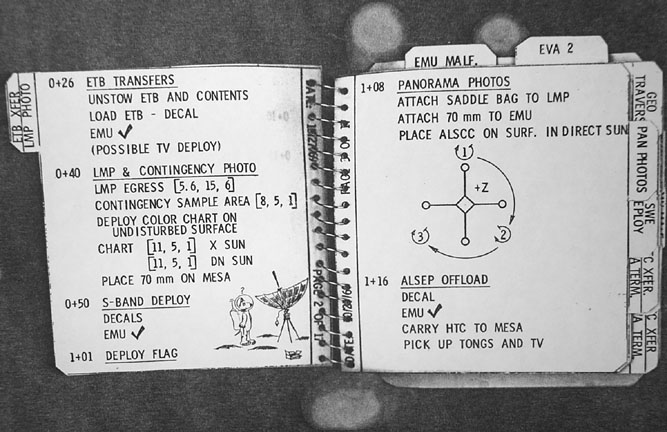 ETB XFER
LMP PHOTO
0+26 ETB TRANSFERS
UNSTOW ETB AND CONTENTS
LOAD ETB - DECAL
EMU ✓
(POSSIBLE TV DEPLOY)
0+40 LMP & CONTINGENCY PHOTO
LMP EGRESS [5.6, 15, 6]
CONTINGENCY SAMPLE AREA [8, 5, 1]
DEPLOY COLOR CHART ON
UNDISTURBED SURFACE
CHART [11, 5, 1] X SUN
[11, 5, 1] DN SUN
PLACE 70 mm ON MESA
0+50 S-BAND DEPLOY
DECALS
EMU ✓
1+01 DEPLOY FLAG
?
DATE:
PAGE 2 OF 17
EMU MALF.
EVA 2
1+08 PANORAMA PHOTOS
ATTACH SADDLE BAG TO LMP
ATTACH 70 mm TO EMU
PLACE ALSCC ON SURF. IN DIRECT SUN
1
+Z
3
2
1+16 ALSEP OFFLOAD
DECAL
EMU ✓
CARRY HTC TO MESA
PICK UP TONGS AND TV
GEO
TRAVERS
PAN PHOTOS
SWE
EPLOY
C XFER
A TERM.
C XFER
/A TERM